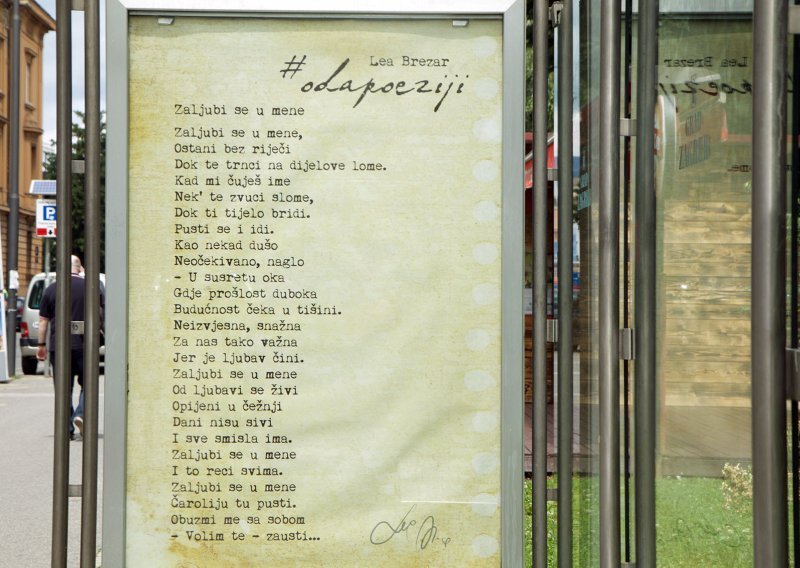 Lea Brezar
#odapoeziji
Zaljubi se u mene
Zaljubi se u mene,
Ostani bez riječi
Dok te trnci na dijelove lome.
Kad mi čuješ ime
Nek' te zvuci slome,
Dok ti tijelo bridi.
Pusti se i idi.
Kao nekad dušo
Neočekivano, naglo
- U susretu oka
Gdje prošlost duboka
Budućnost čeka u tišini.
Neizvjesna, snažna
Za nas tako važna
Jer je ljubav čini.
Zaljubi se u mene
Od ljubavi se živi
Opijeni u čežnji
Dani nisu sivi
I sve smisla ima.
Zaljubi se u mene
I to reci svima.
Zaljubi se u mene
Čaroliju tu pusti.
Obuzmi me sa sobom
- Volim te - zausti...
P